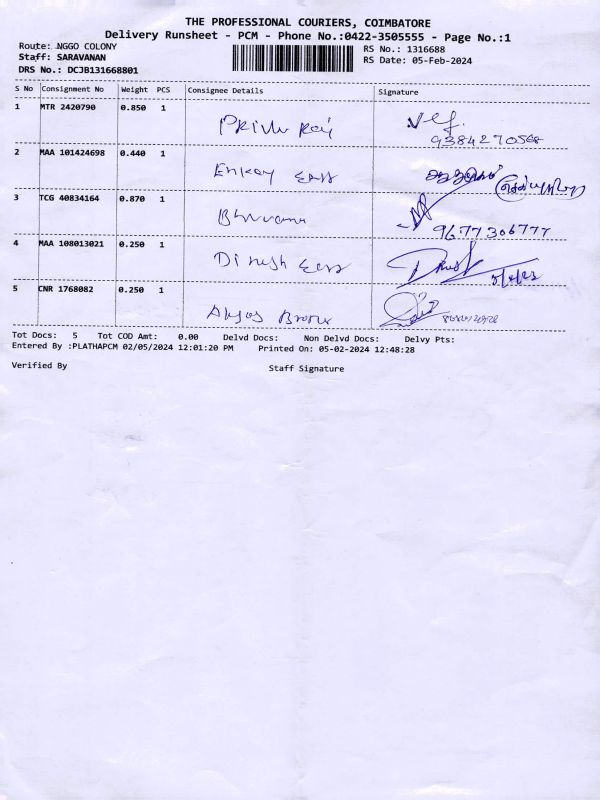 THE PROFESSIONAL COURIERS, COIMBATORE
Delivery Runsheet - PCM - Phone No.:0422-3505555 - Page No.:1
Route: NGGO COLONY RS No.: 1316688
Staff: SARAVANAN RS Date: 05-Feb-2024
DRS No.: DCJB131668801
S No Consignment No Weight PCS Consignee Details Signature
1 MTR 2420790 0.850 1
9384270568
2 MAA 101424698 0.440 1
3 TCG 40834164 0.870 1 Bhuvana
9677306777
4 MAA 108013021 0.250 1 Dinesh
5 CNR 1768082 0.250 1
Tot Docs: 5 Tot COD Amt: 0.00 Delvd Docs: Non Delvd Docs: Delvy Pts:
Entered By :PLATHAPCM 02/05/2024 12:01:20 PM Printed On: 05-02-2024 12:48:28
Verified By Staff Signature